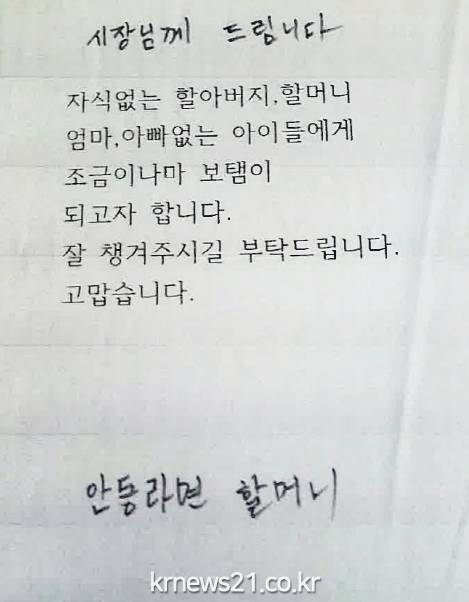 시장님께 드립니다
자식없는 할아버지,할머니
엄마,아빠없는 아이들에게
조금이나마 보탬이
되고자 합니다.
잘 챙겨주시길 부탁드립니다.
고맙습니다.
안동라면 할머니
krnews21.co.kr